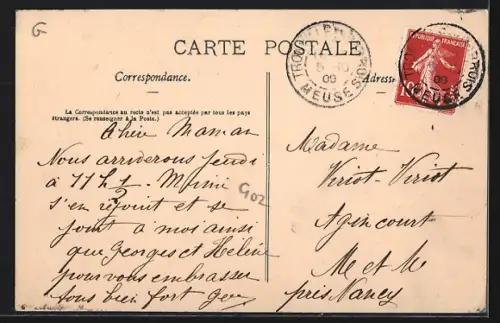 G
CARTE POSTALE
Correspondance.
Adresse
La Correspondance au recto n'est pas acceptée par tous les pays
étrangers. (Se renseigner à la Poste.)
TROU
5-10
09
MEUSE
REPUBLIQUE FRANÇAISE
10
09
MEUSE
Chère Maman
Nous arriverons jeudi
à 11h 1/2. Mimi
s'en réjouit et se
joint à moi ainsi
que Georges et Hélène
pour vous embrasser
tous bien fort
G02
Madame
Viriot-Viriot
Agincourt
M et M
près Nancy